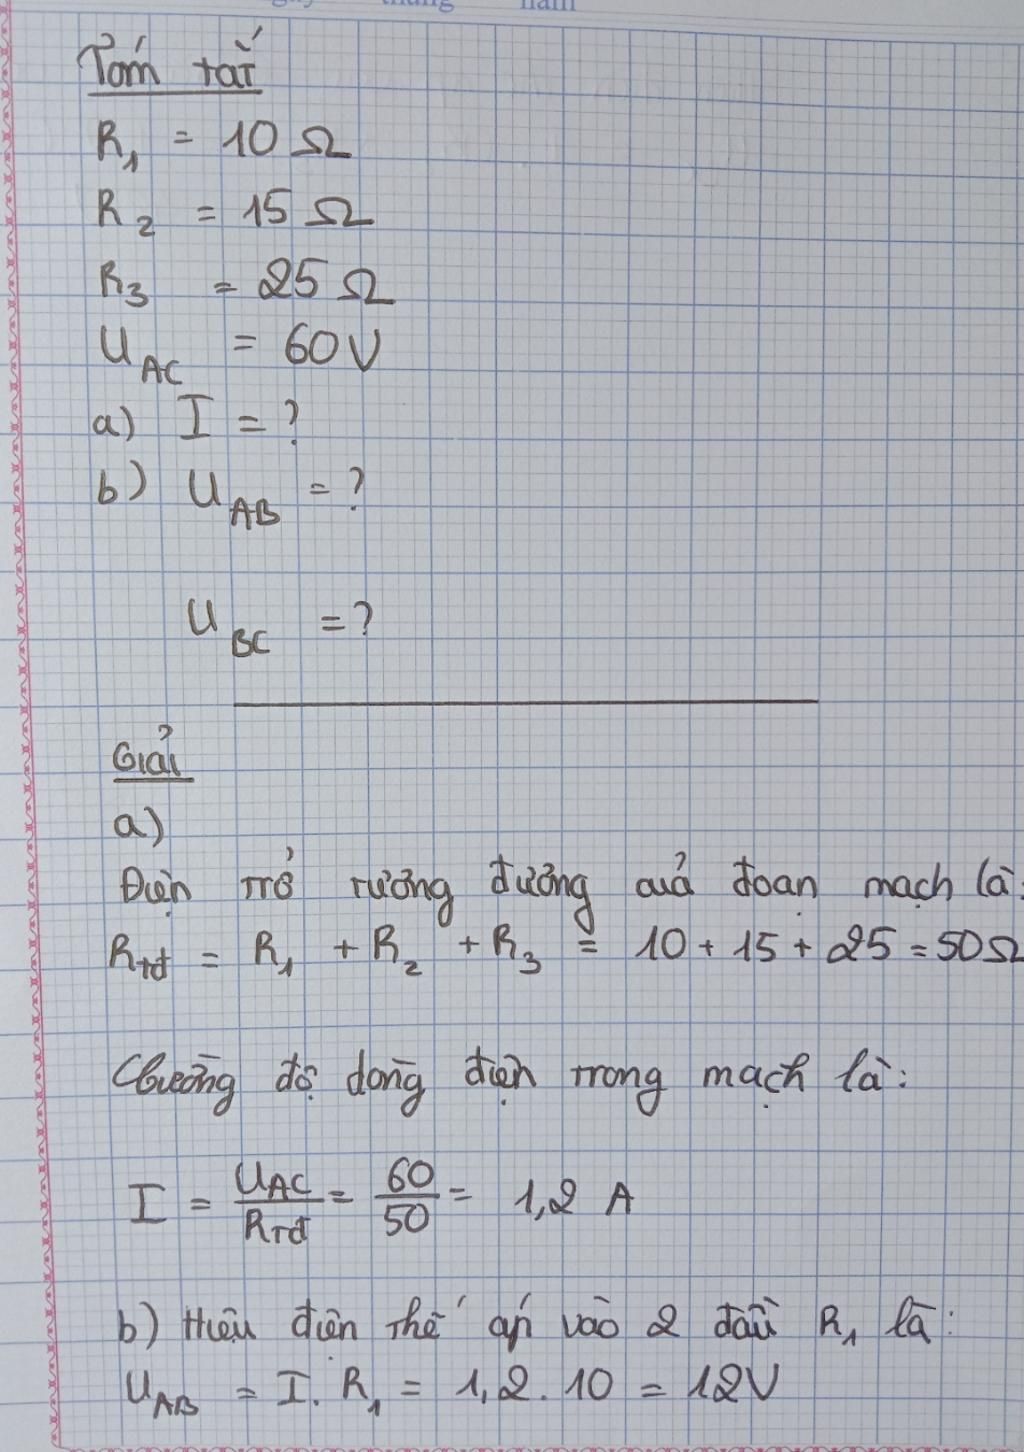 Tóm tắt
R₁ = 10 Ω
R₂ = 15 Ω
R₃ = 25 Ω
U_AC = 60V
a) I = ?
b) U_AB = ?
U_BC = ?
Giải
a)
Điện trở tương đương của đoạn mạch là:
R_tđ = R₁ + R₂ + R₃ = 10 + 15 + 25 = 50Ω
Cường độ dòng điện trong mạch là:
I = U_AC/R_tđ = 60/50 = 1,2 A
b) Hiệu điện thế áp vào 2 đầu R₁ là:
U_AB = I. R₁ = 1,2. 10 = 12V